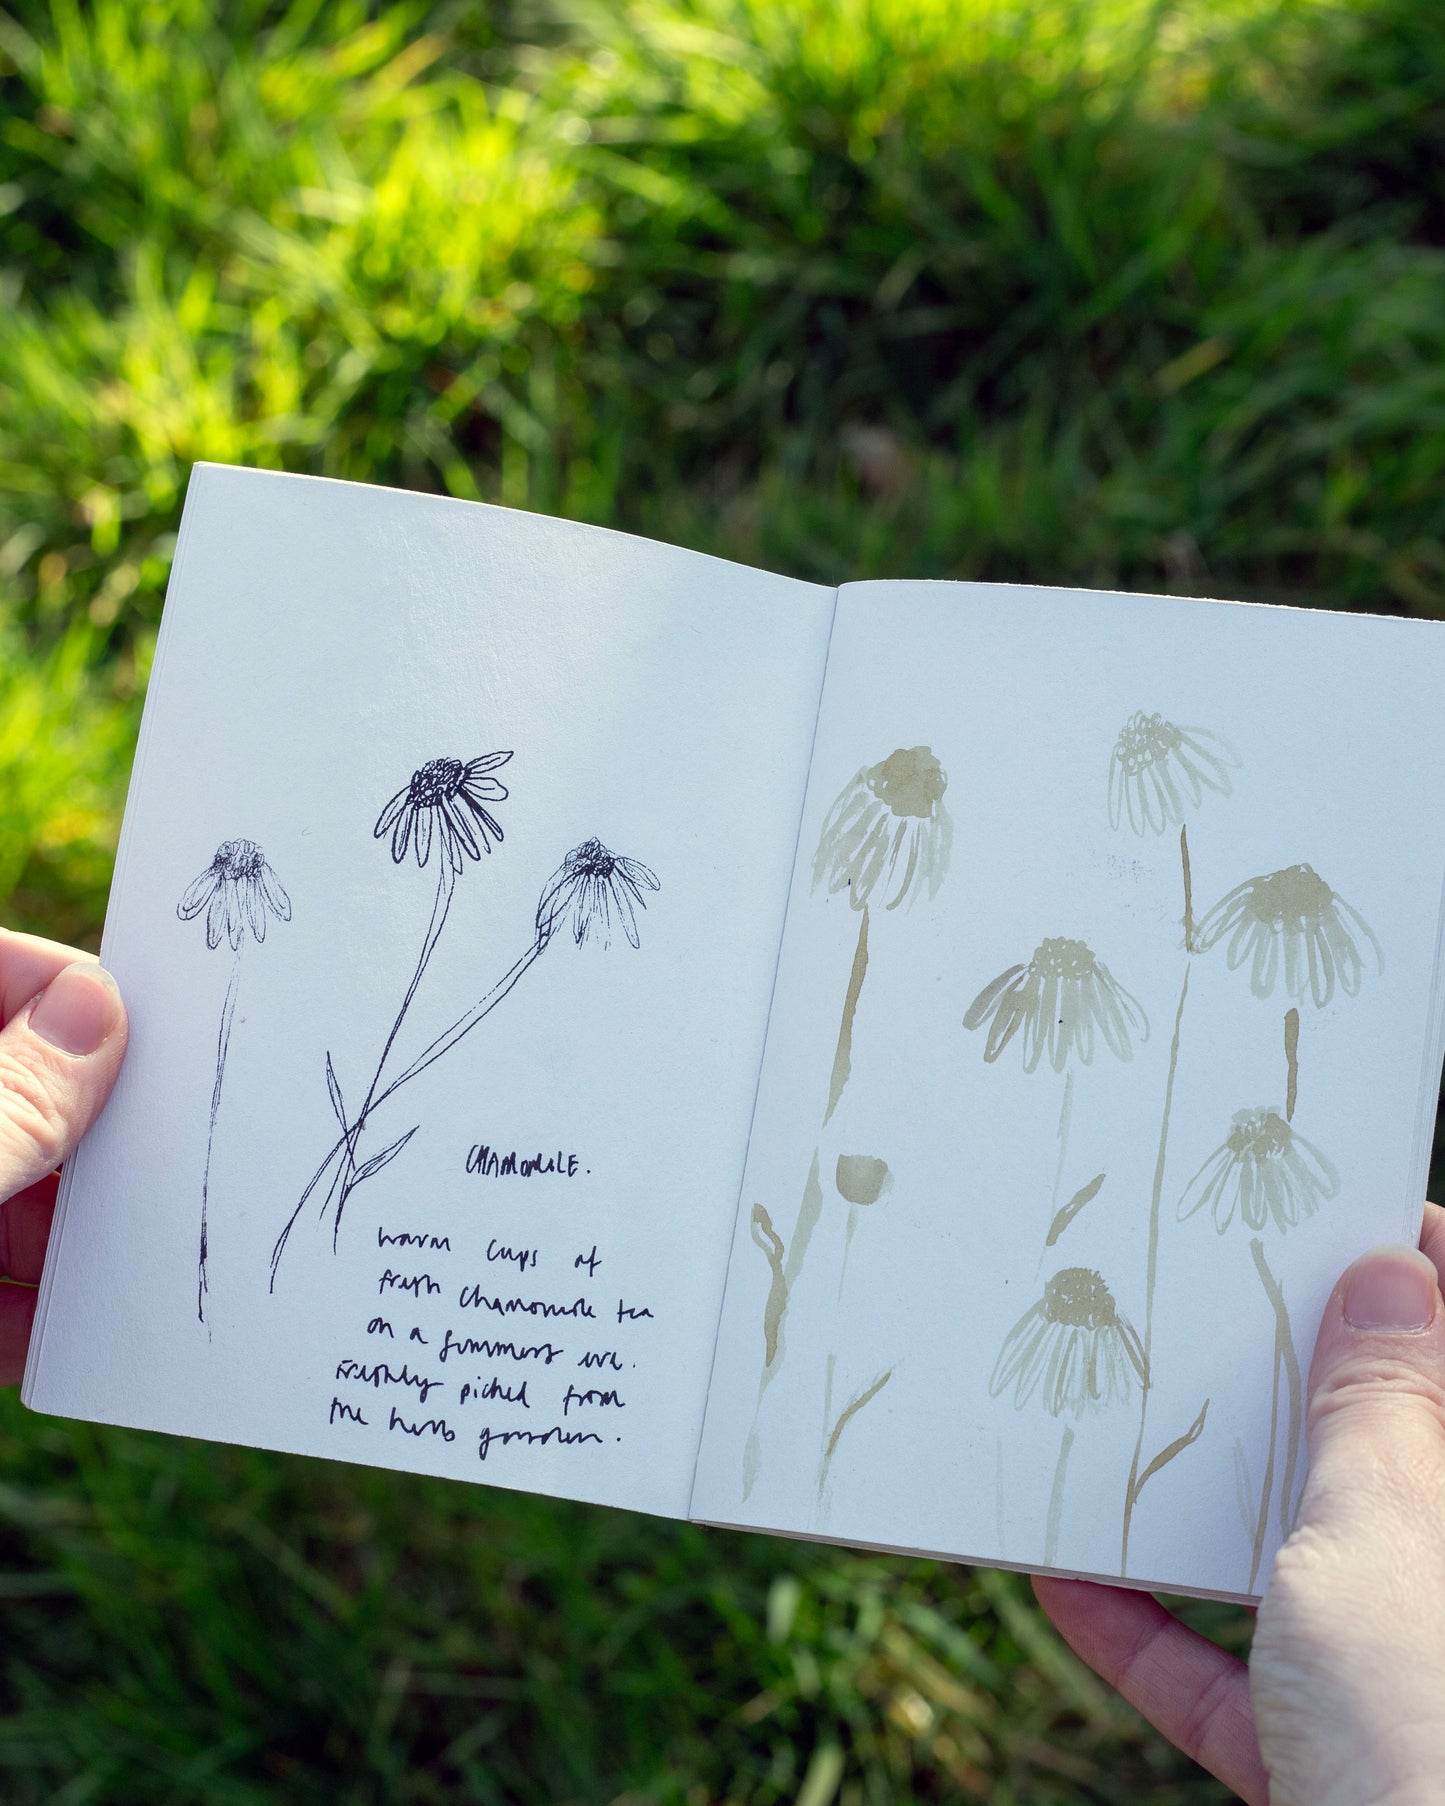 CHAMOMILE.
warm cups of
fresh chamomile tea
on a summers eve.
Freshly picked from
the herb garden.